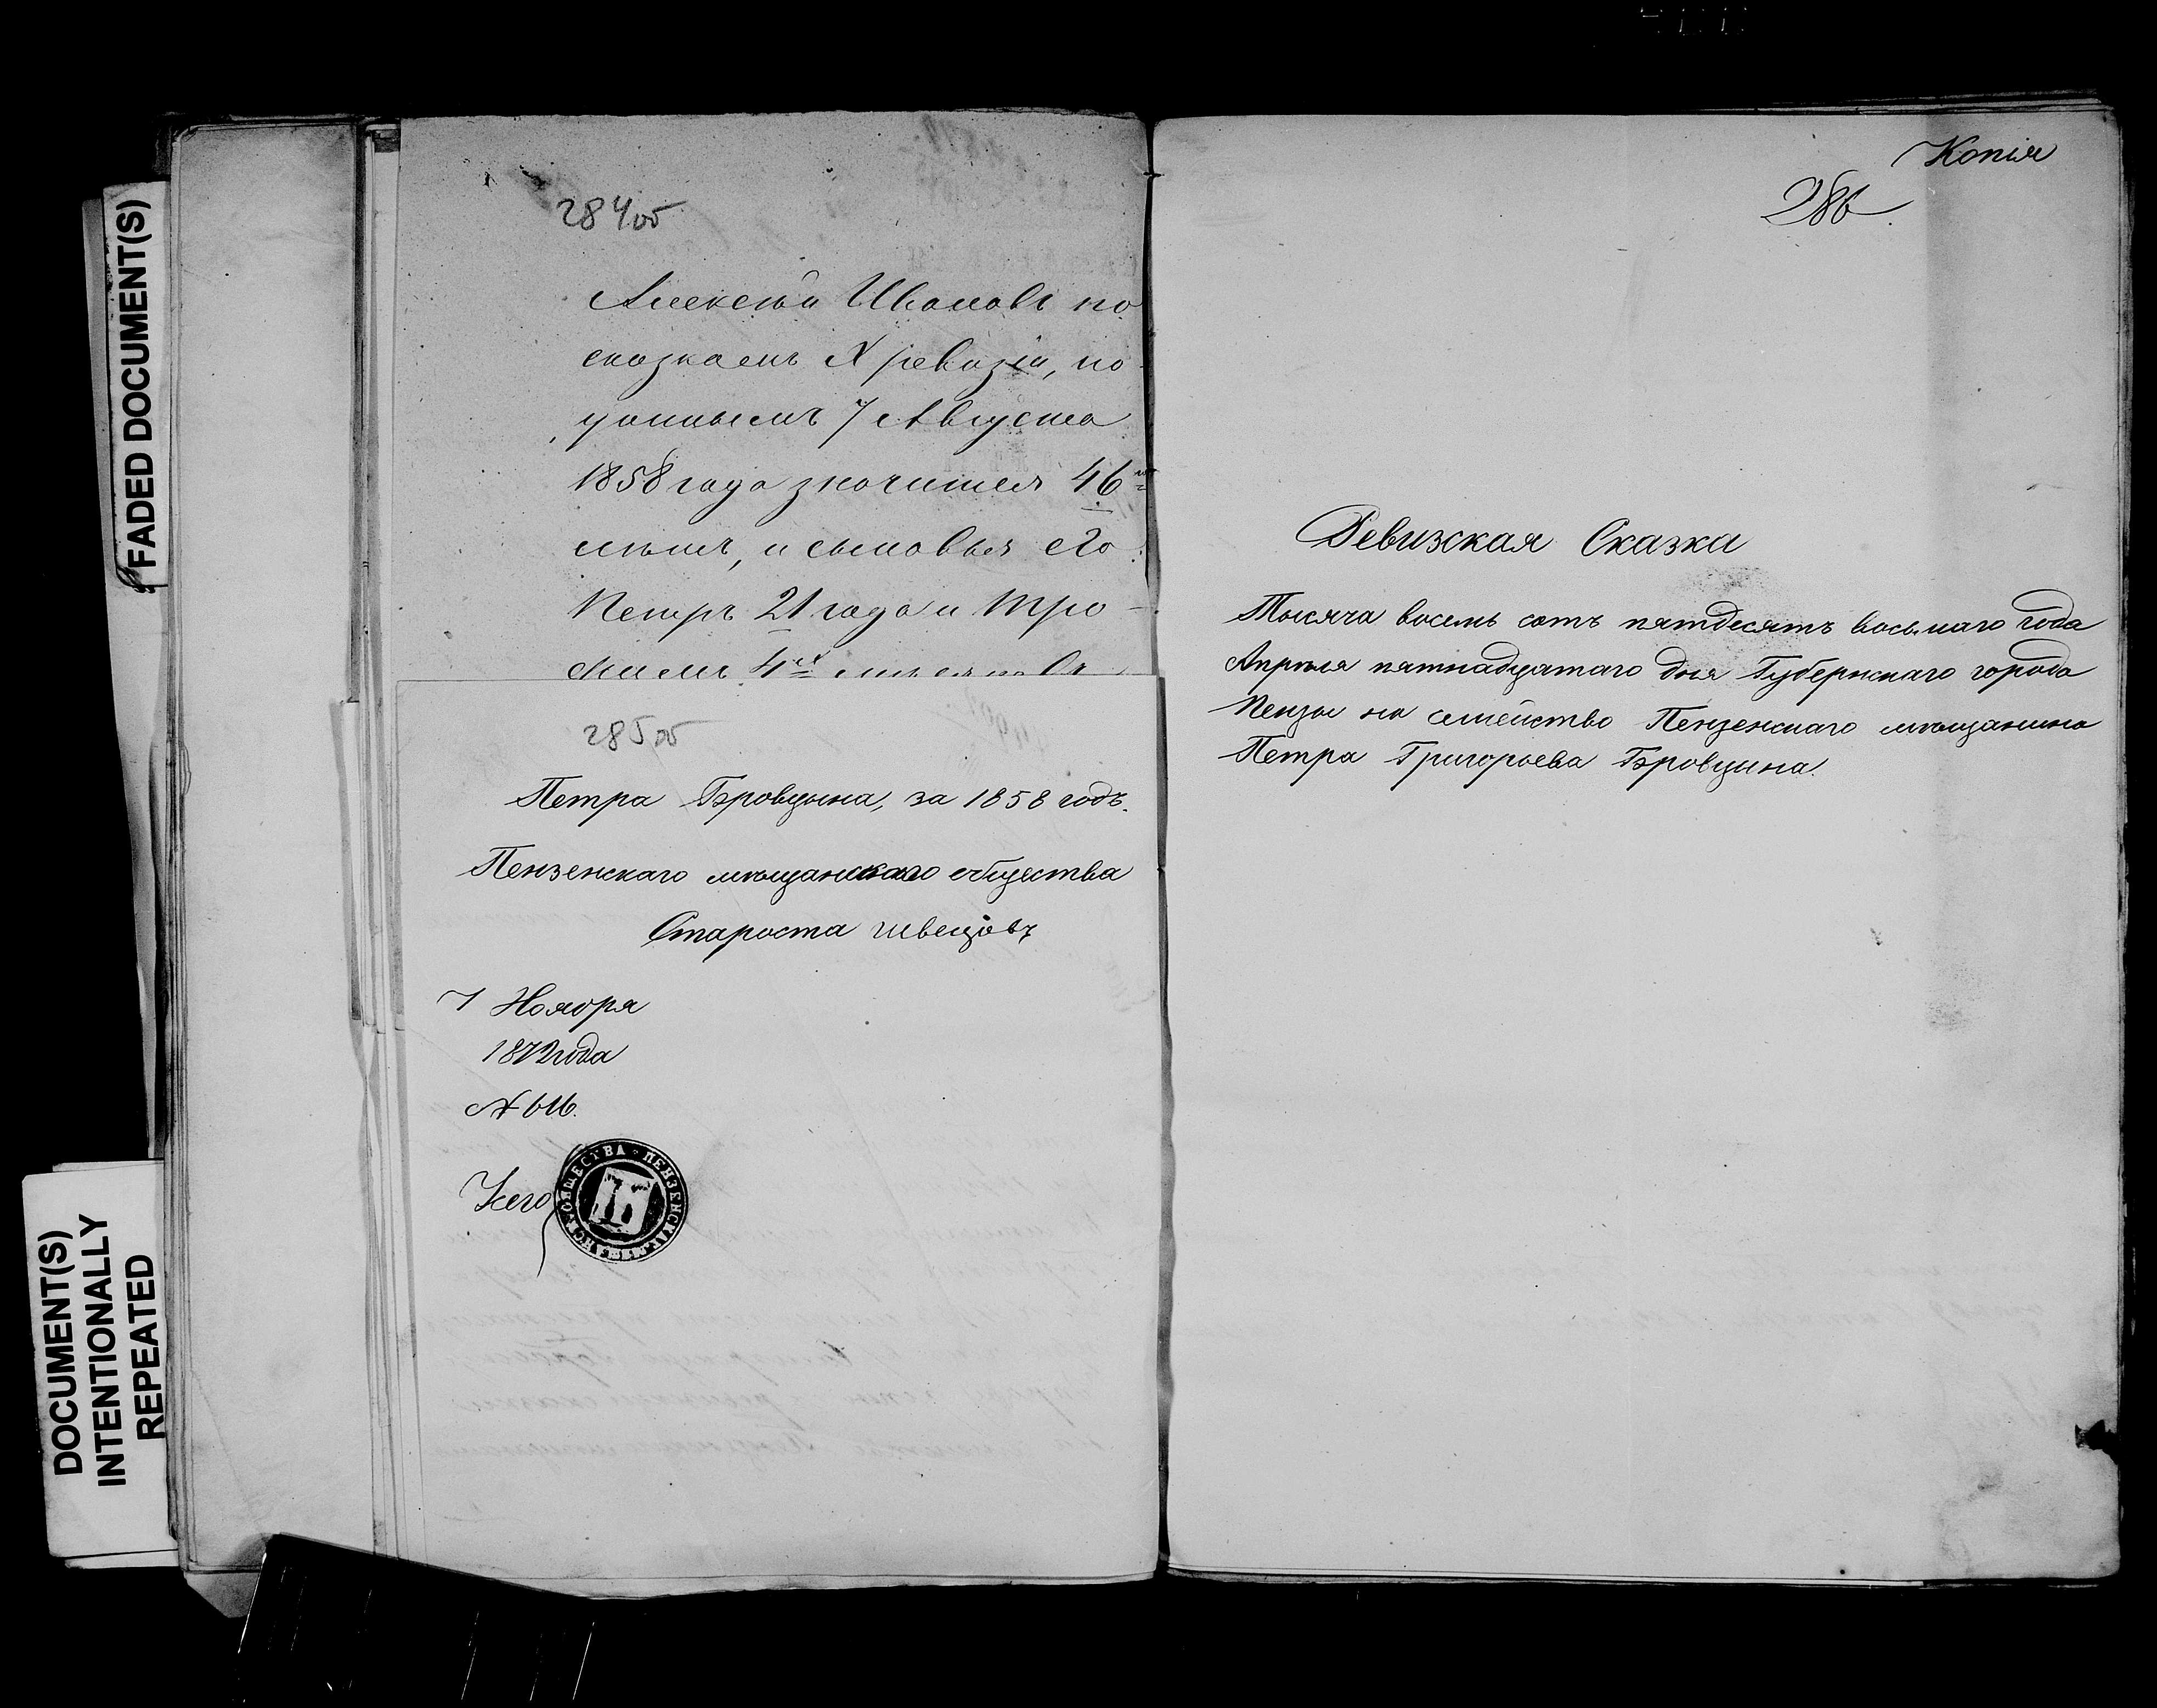 FADED DOCUMENT(S)
DOCUMENT(S)
INTENTIONALLY
REPEATED
284об
Алексѣй Ивановъ по
сказкамъ X ревизіи, по-
даннымъ 7 Августа
1858 года значится 46
лѣтъ, и сыновья его:
Петръ 21 года и Тро-
285об
Петра Бровцына, за 1858 годъ.
Пензенскаго мѣщанскаго общества
Староста Швецовъ
7 Ноября
1872 года
№ 616.
ПЕНЗЕНСКАГ. МѢЩАНСК. ОБЩЕСТВА
Копія
286
Ревизская Сказка
Тысяча восемь сотъ пятдесятъ восьмаго года
Апрѣля пятнадцатаго дня Губернскаго города
Пензы на семейство Пензенскаго мѣщанина
Петра Григорьева Бровцина.